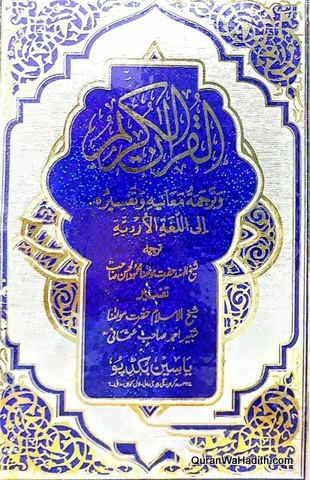 القرآن الكريم
وترجمة معانيه وتفسيره
إلى اللغة الأردية
ترجمه
شيخ الہند حضرت مولٰنا محمود الحسن صاحبؒ
تفسير
شيخ الاسلام حضرت مولٰنا
شبیر احمد صاحب عثمانیؒ
یاسین بکڈپو
QuranWaHadith.com